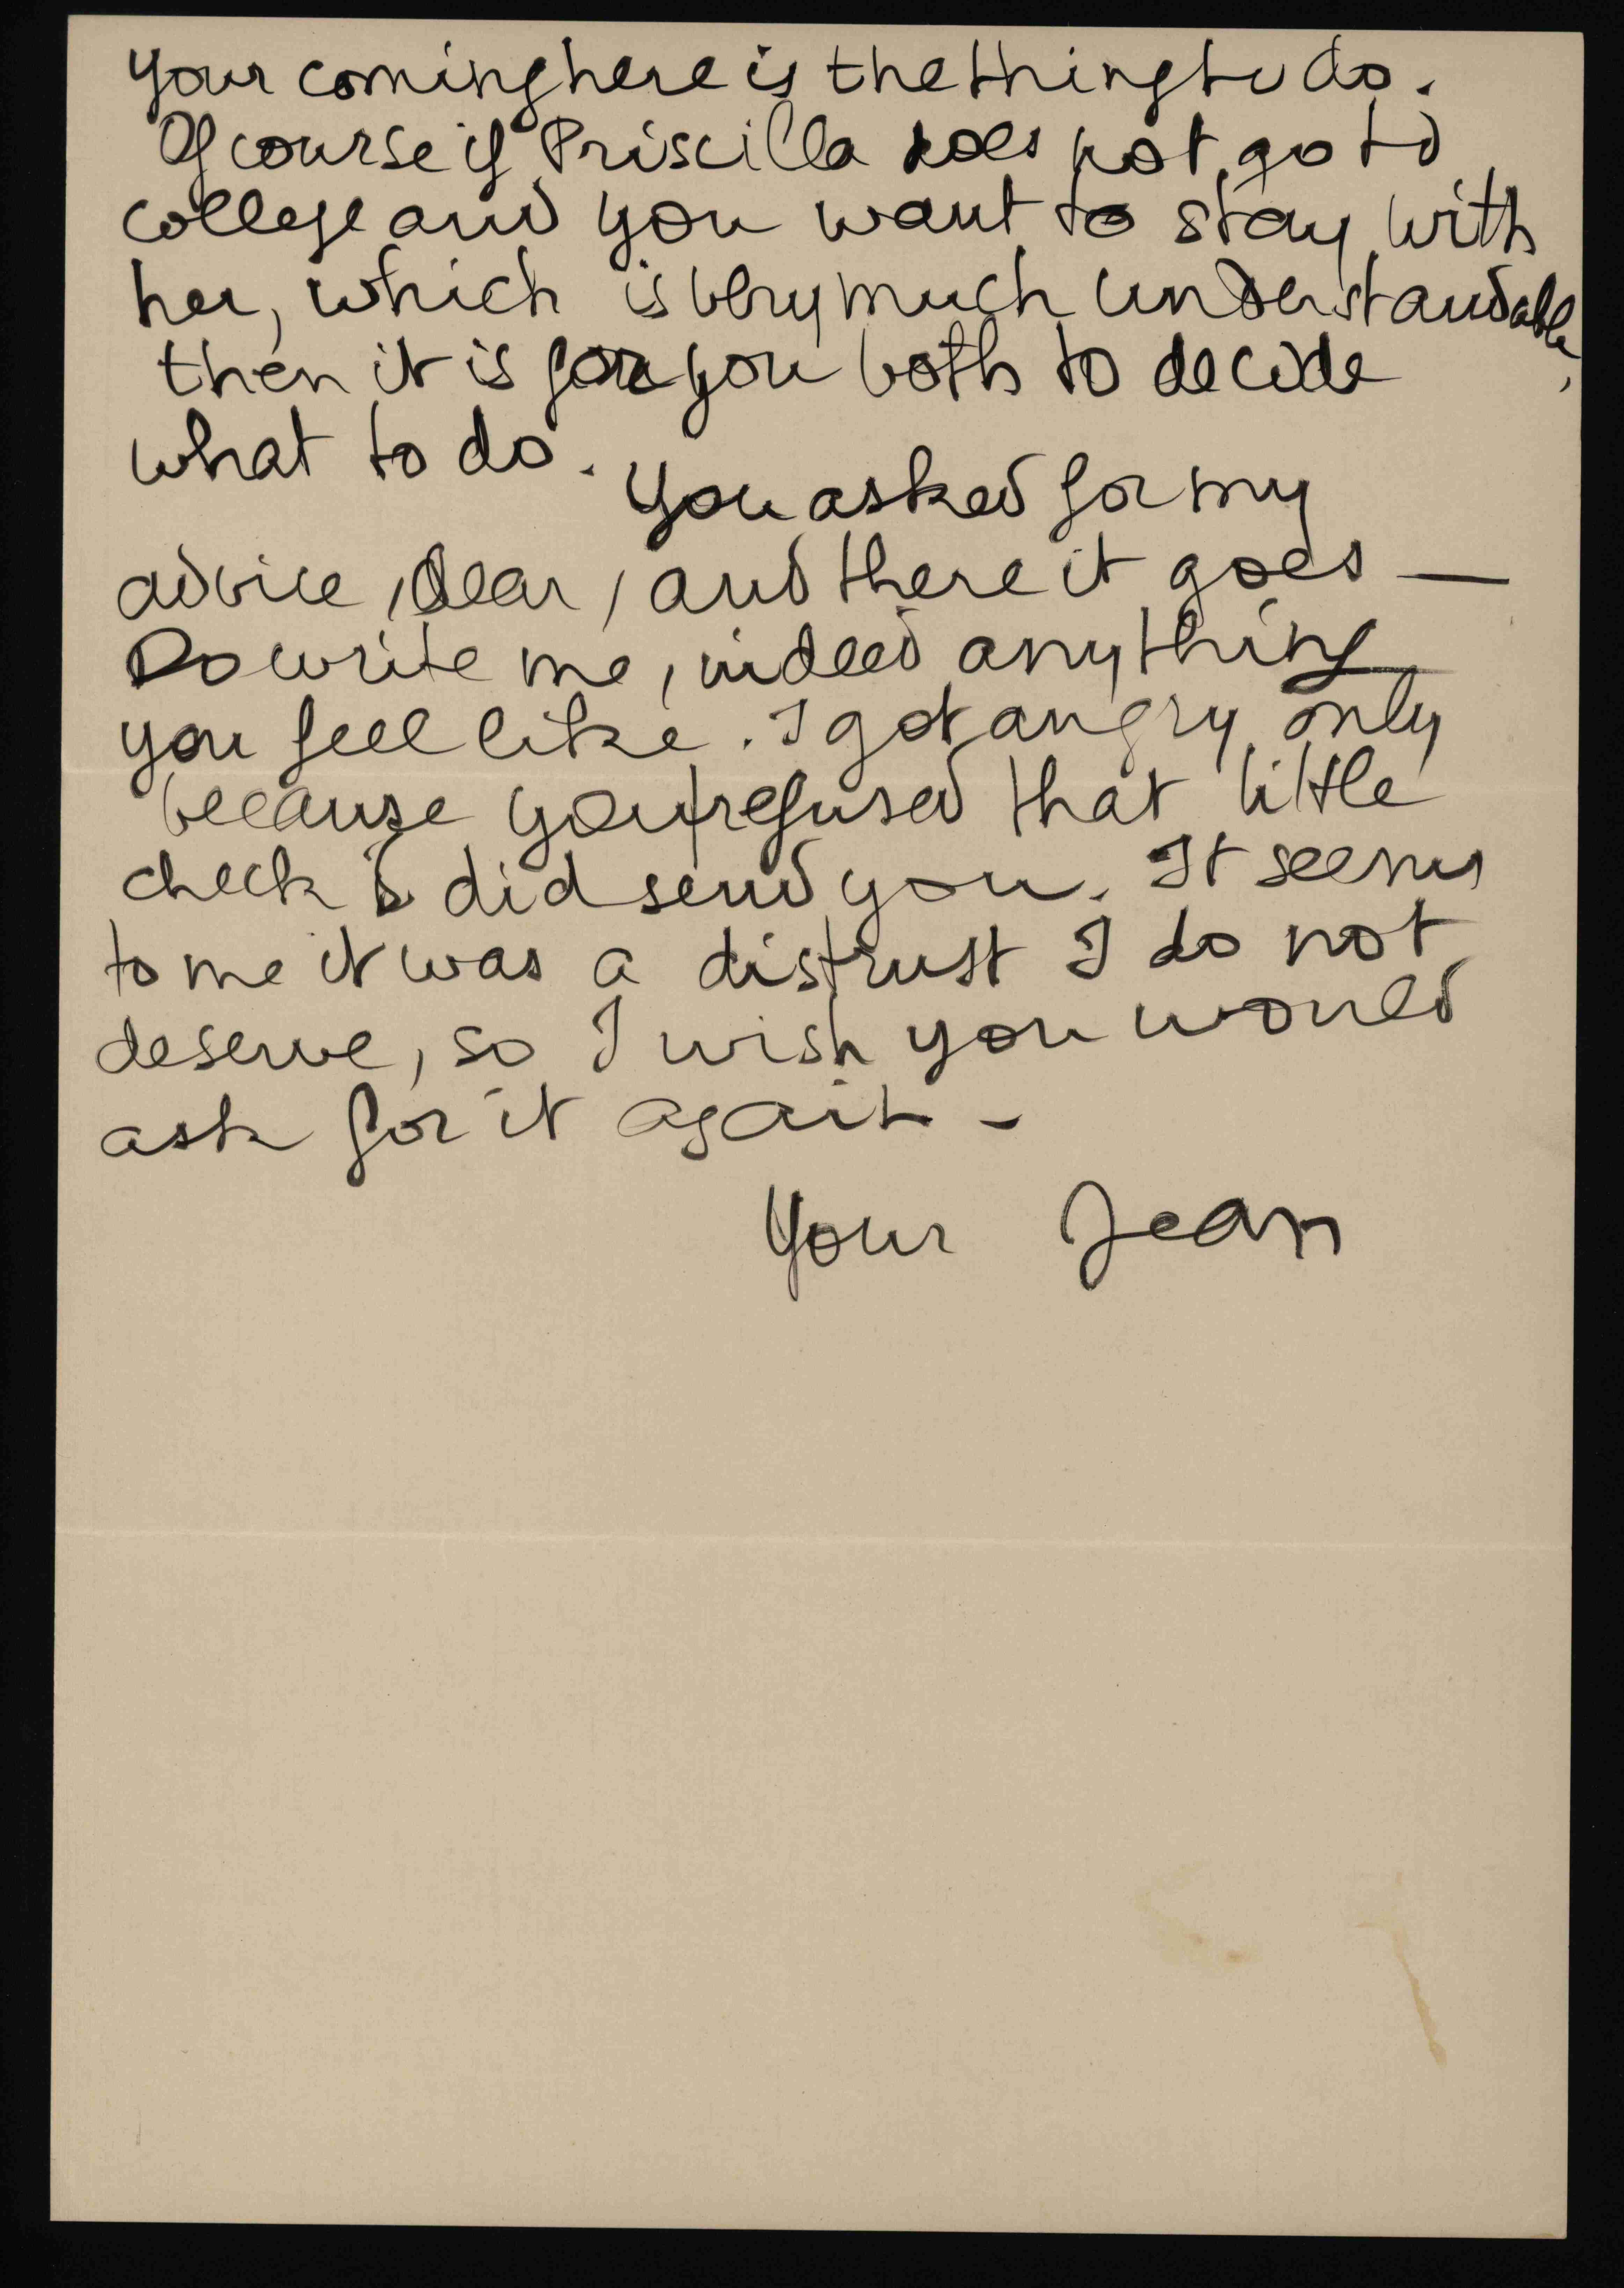 your coming here is the thing to do.
Of course if Priscilla does not go to
college and you want to stay with
her, which is very much understandable,
then it is for you both to decide
what to do. You asked for my
advice, dear, and there it goes —
Do write me, indeed anything
you feel like. I got angry only
because you refused that little
check I did send you. It seems
to me it was a distrust I do not
deserve, so I wish you would
ask for it again -
Your Jean